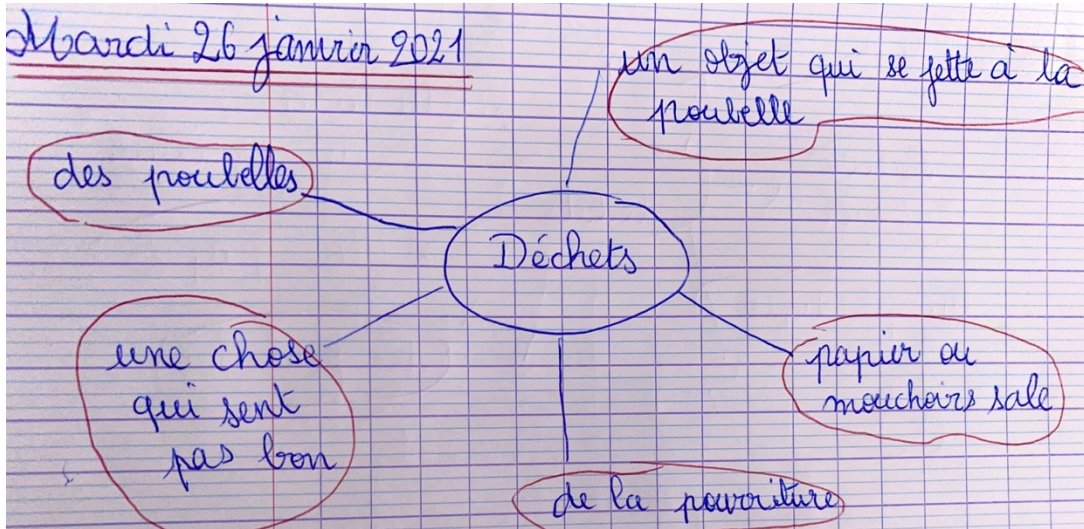 Mardi 26 janvier 2021
un objet qui se jette à la
poubelle
des poubelles
Déchets
une chose
qui sent
pas bon
papier ou
mouchoirs sale
de la pourriture